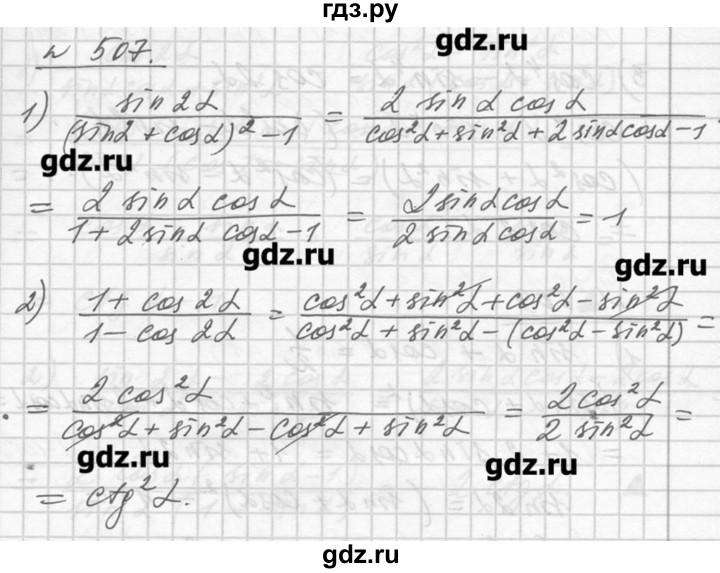 гдз.ру
№ 507.
gdz.ru
1) sin 2α / (sin α + cos α)² − 1 = 2 sin α cos α / cos²α + sin²α + 2 sin α cos α − 1
gdz.ru
= 2 sin α cos α / 1 + 2 sin α cos α − 1 = 2 sin α cos α / 2 sin α cos α = 1
gdz.ru
gdz.ru
2) 1 + cos 2α / 1 − cos 2α = cos²α + sin²α + cos²α − sin²α / cos²α + sin²α − (cos²α − sin²α) =
= 2 cos²α / cos²α + sin²α − cos²α + sin²α = 2 cos²α / 2 sin²α =
gdz.ru
gdz.ru
= ctg²α.
gdz.ru